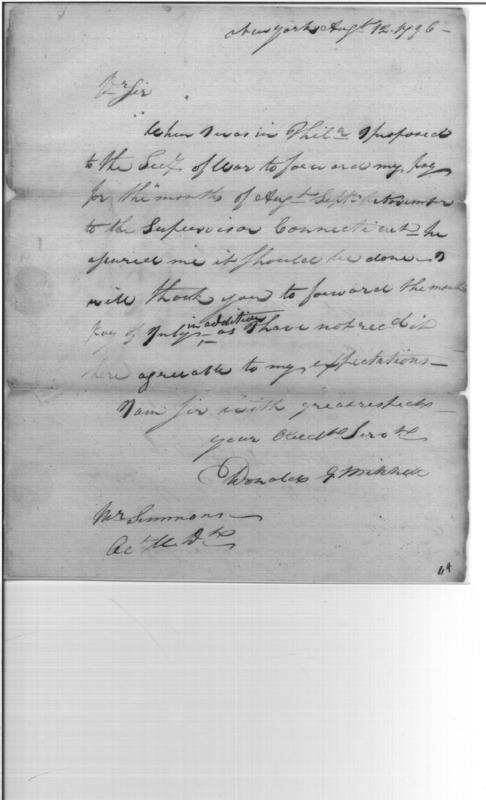 New York Augt 12. 1796 -
Dr Sir
When I was in Phila I proposed
to the Secy of War to forward my pay
for the months of Augt Septr & November
to the Supervisor Connecticut he
assured me it should be done - I
will thank you to forward the months
pay of July in addition - as I have not recd it
here agreeable to my expectations -
I am Sir with great respect
your Obedt Servt
Donald G Mitchell
Mr Simmons -
Act W. Dt